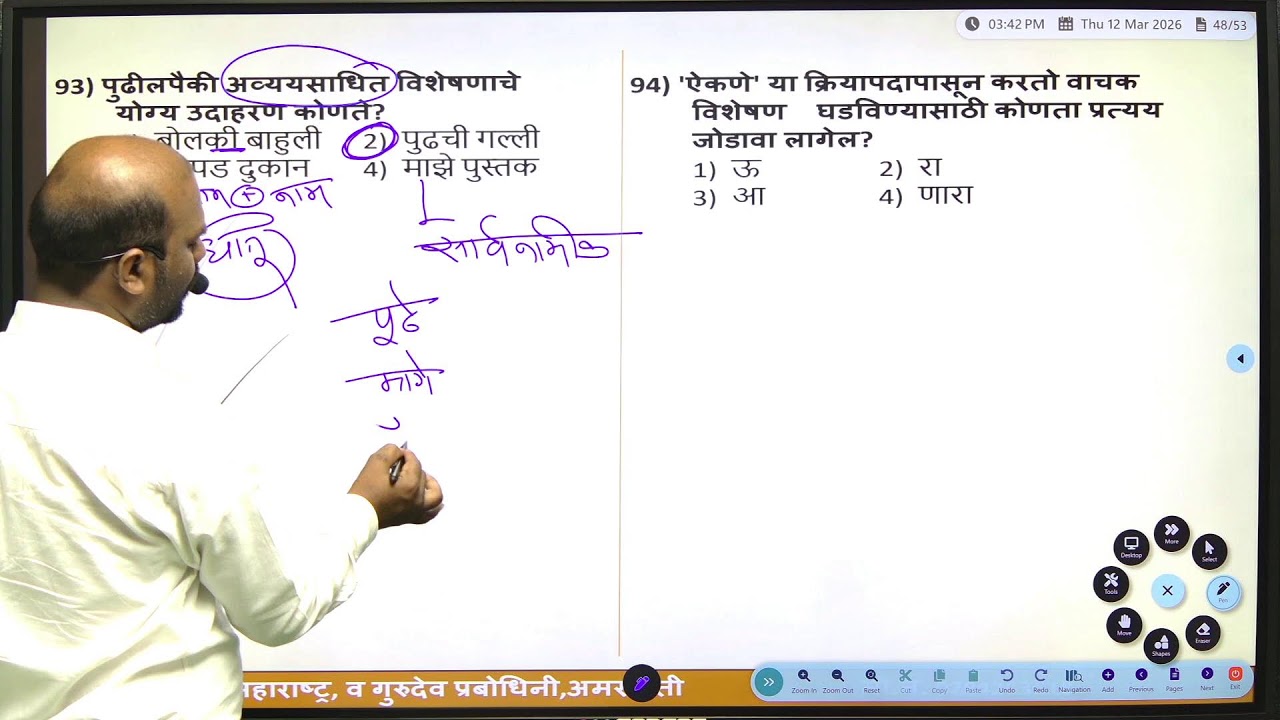 03:42 PM Thu 12 Mar 2026 48/53
93) पुढीलपैकी अव्ययसाधित विशेषणाचे
योग्य उदाहरण कोणते?
बोलकी बाहुली 2) पुढची गल्ली
दुकान 4) माझे पुस्तक
नाम
धातू
सार्वनामीक
पूढे
मागे
94) 'ऐकणे' या क्रियापदापासून करतो वाचक
विशेषण घडविण्यासाठी कोणता प्रत्यय
जोडावा लागेल?
1) ऊ 2) रा
3) आ 4) णारा
More
Desktop Select
Tools Pen
Move Eraser
Shapes
व गुरुदेव प्रबोधिनी,
Zoom In Zoom Out Reset Cut Copy Paste Undo Redo Navigation Add Previous Pages Next Exit